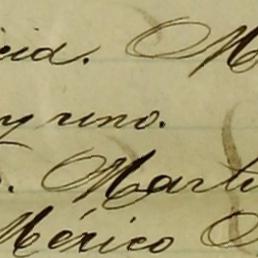 cid. M
y uno.
. Marti
México